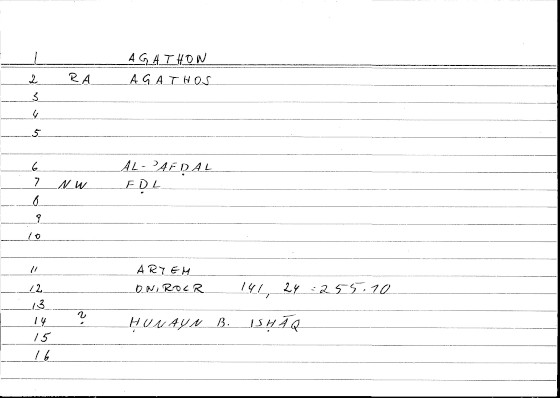 1 AGATHON
2 RA AGATHOS
3
4
5
6 AL-ʾAFḌAL
7 NW FḌL
8
9
10
11 ARTEM
12 ONIROCR 141, 24 = 255.10
13
14 ? ḤUNAYN B. ISḤĀQ
15
16